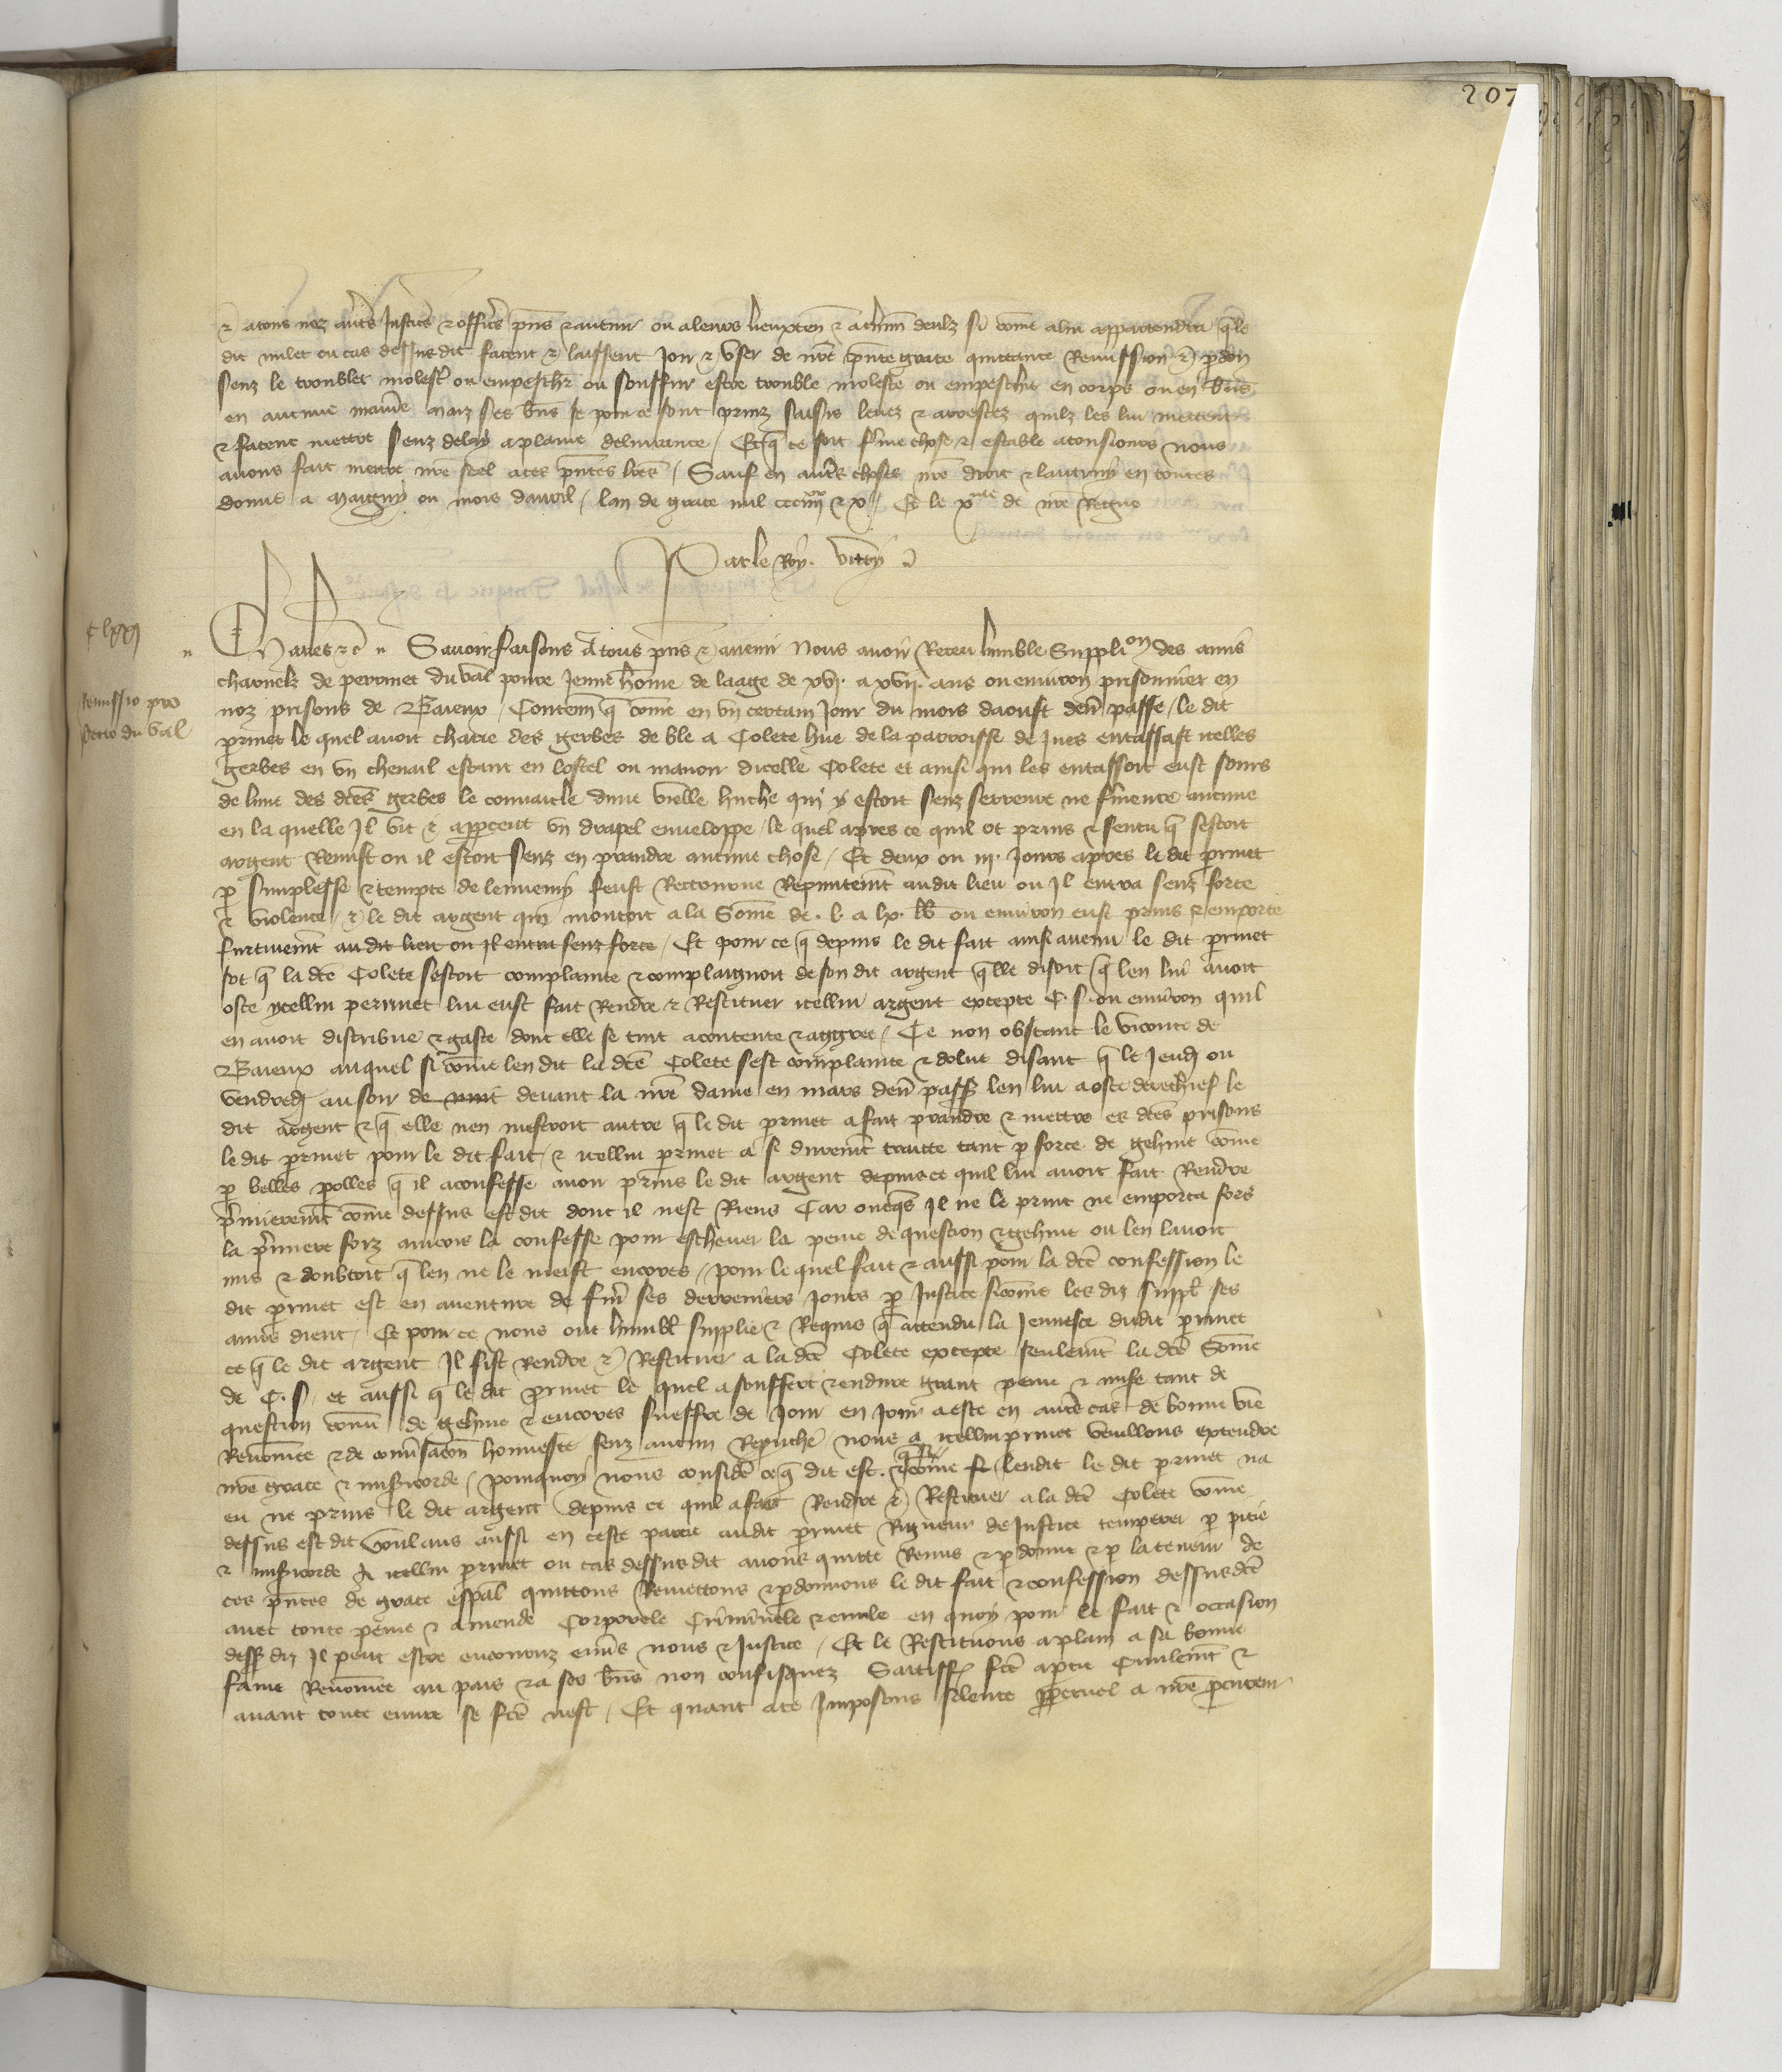 207
& a tous noz autres justic̃ & offic̃ p̃ns & avenir ou a leurs lieuxten̄ & a chũn deulz si com̃e a lui appartendra q̃ le
dit milet ou cas dessus dit facent & laissent joir & user de nr̃e p̃nte grace quittance Remission & p̱don
senz le troubler molest̃ ou empesch̃r ou souffrir estre trouble moleste ou empeschie en corps ou en biẽs
en aucune manie͛ maiz ses biẽs se pour ce sont prinz saisis levez & arrestez quilz les lui mettent
& facent mettre senz delay a plaine delivrance / Et q̃ ce soit ferme chose & estable a tousiours nous
avons fait mettre nr̃e scel a ces p̃ntes lr̃es / Sauf en autres choses nr̃e droit & lautruy en toutes
donne a maigny ou mois davril / lan de grace mil ccc iiiixx & x / Et le xme de nr̃e Regne
Par le Roy. vittry
c lxxj
Charles &c̃ Savoir faisons A tous p̃ns & avenir Nous avoir Receu lumble Supplion des amis
charnelz de perrinet du val povre jeune hom̃e de laage de xvj. a xvij. ans ou environ prisonnier en
Remissio pro
Petro du Val
noz prisons de Baieux / Conten̄ q̃ com̃e en un certain jour du mois daoust den̄ passe / le dit
p̱rinet le quel avoit charie des gerbes de ble a Colete hue de la parroisse de Jues entassast icelles
gerbes en un chenail estant en lostel ou manoir dicelle Colete et ainsi qui les entassoit eust soubs
de lune des dc̃es gerbes le couvaicle dune vielle huche qui y estoit senz serreure ne fermence aucune
en la quelle Il vit & app̱ceut un drapel enveloppe / le quel apres ce quil ot prins & sentu q̃ sestoit
argent Remist ou il estoit senz en prandre aucune chose / Et deux ou iij. jours apres le dit p̱rinet
p̱ simplesse & tempte de lennemy feust Retourne Repintem̃t au dit lieu ou Il entra senz force
& violence / & le dit argent qui montoit a la Som̃e de. l. a lx. lb̃ ou environ eust prins & emporte
furtivem̃t au dit lieu ou Il entra senz force / Et pour ce q̃ depuis le dit fait ainsi avenu le dit p̱rinet
sot q̃ la dc̃e Colete sestoit complainte & complaignoit de son dit argent q̃lle disoit q̃ len lui avoit
oste ycellui perrinet lui eust fait Rendre & Restituer icellui argent excepte C. s. ou environ quil
en avoit distribue & gaste dont elle se tint a contente & aggree / Ce non obstant le viconte de
Baieux auquel si com̃e len dit la dc̃e Colete sest complainte & dolue disant q̃ le jeudj ou
vendredj au soir de nuit devant la nr̃e dame en mars den̄ passe len lui a oste derechief le
dit argent & q̃ elle nen mescroit autre q̃ le dit p̱rinet a fait prandre & mettre es dc̃es prisons
le dit p̱rinet pour le dit fait / & icellui p̱rinet a si durem̃t traitte tant p̱ force de gehine com̃e
p̱ belles p̱olles q̃ il a confesse avoir prins le dit argent depuis ce quil lui avoit fait Rendre
p̃mierem̃t com̃e dessus est dit dont il nest Riens Car oncq̃s Il ne le print ne emporta fors
la p̃miere forz aincois la confesse pour eschever la peine de question & gehine ou len lavoit
mis & doubtoit q̃ len ne le meist encores / pour le quel fait & aussi pour la dc̃e confession le
dit p̱rinet est en aventure de finer ses derreniers jours p̱ justice si com̃e les diz suppl̃ ses
amis dient / Et pour ce nous ont humbl̃ supplie & Requis q̃ attendu la jeunesce dudit p̱rinet
ce q̃ le dit argent Il fist Rendre & Restituer a la dc̃e Colete excepte seulem̃t la dc̃e Som̃e
de C. s. et aussi q̃ le dit p̱rinet le quel a souffert & endure grant peine & mise tant de
question com̃e de gehine & encores sueffre de jour en jour a este en autre cas de bonne vie
Renom̃ee & de conv̄sac̃on honneste senz aucun Repuche nous a icellui p̱rinet veuillons extendre
nr̃e grace & mis͛icorde / pour quoy nous consider̃ ce q̃ dit est. & com̃e len dit le dit p̱rinet na
eu ne prins le dit argent depuis ce quil a fait Rendre & Restituer a la dc̃e Colete com̃e
dessus est dit voulans aussi en ceste partie au dit p̱rinet Rigueur de justice temperer p̱ pitie
& mis͛icorde A icellui p̱rinet ou cas dessus dit avons quitte Remis & p̱donne & p̱ la teneur de
ces p̃ntes de grace esp̃al quittons Remettons & p̱donnons le dit fait & confession dessus dc̃e
avec toute peine & amende Corporele Criminele & civile en quoy pour le fait & occasion
dess͛ diz Il peut estre encouruz envers nous & justice / Et le Restituons a plain a sa bonne
fame Renom̃ee au pais & a ses biẽs non confisquez Sattiff͛ fc̃e a p̱tie Civilem̃t &
avant toute euvre se fc̃e nest / Et quant a ce Imposons silence p̱petuel a nr̃e p̱cureur